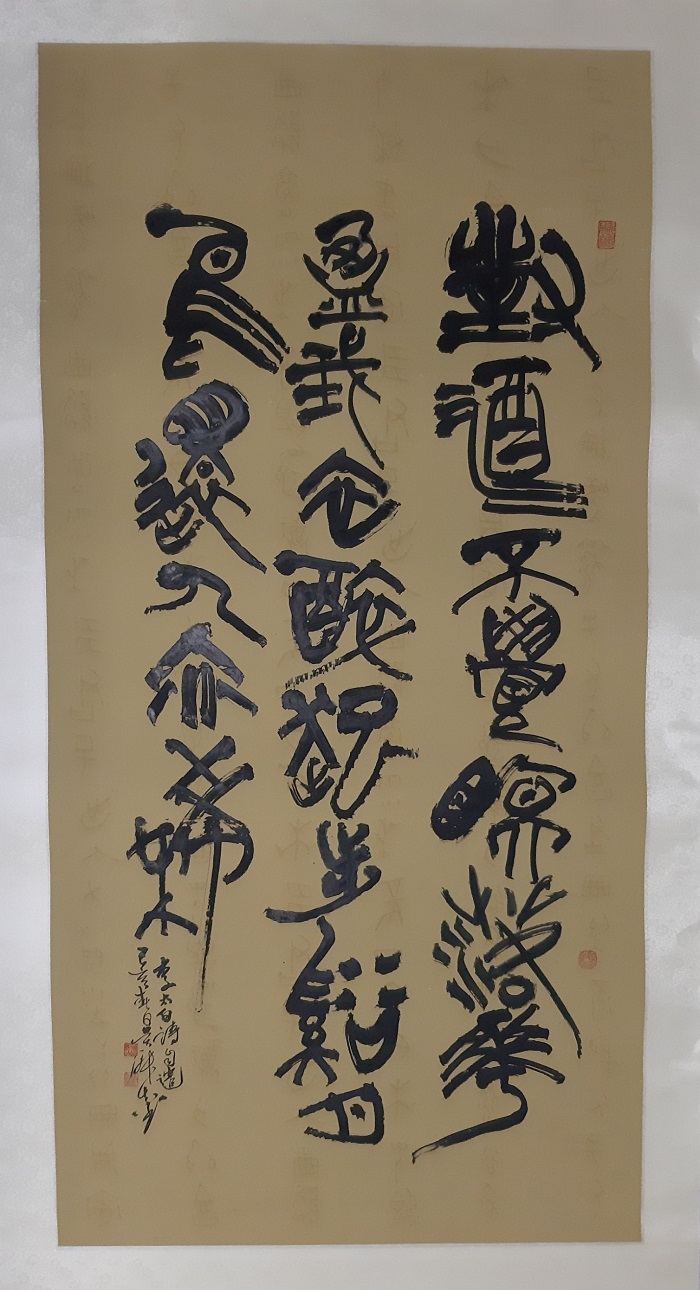 對酒不覺暝落華
盈我衣醉起步谿月
鳥還人亦稀
李太白詩自遣
春日